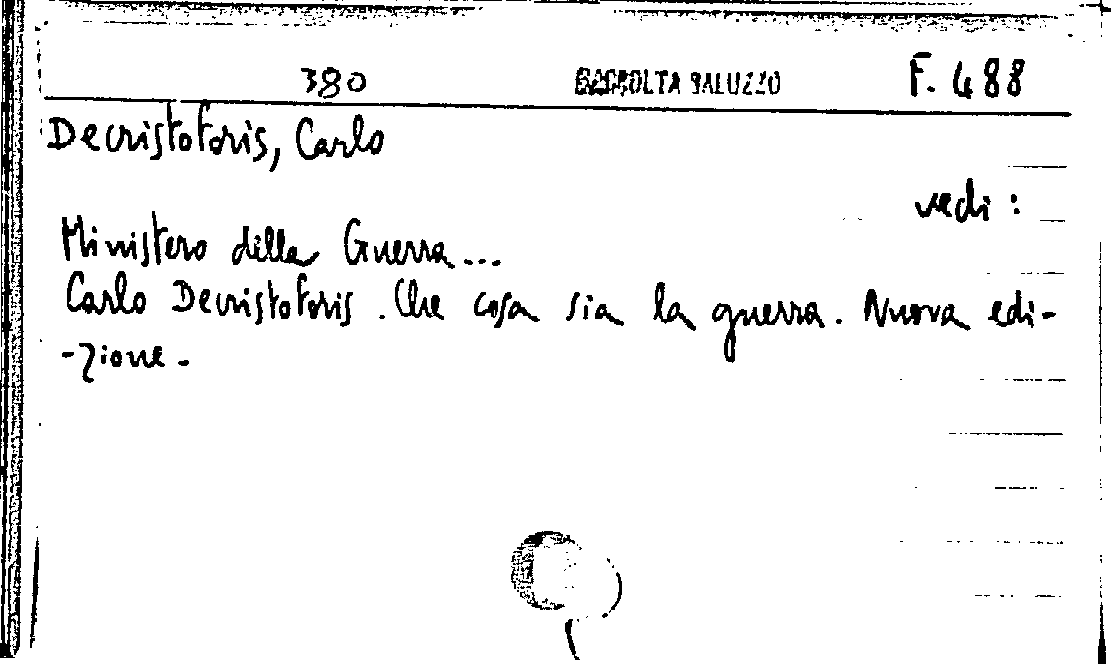 380 RACCOLTA SALUZZO F. 488
Decristoforis, Carlo
vedi :
Ministero della Guerra...
Carlo Decristoforis. Che cosa sia la guerra. Nuova edi-
-zione.